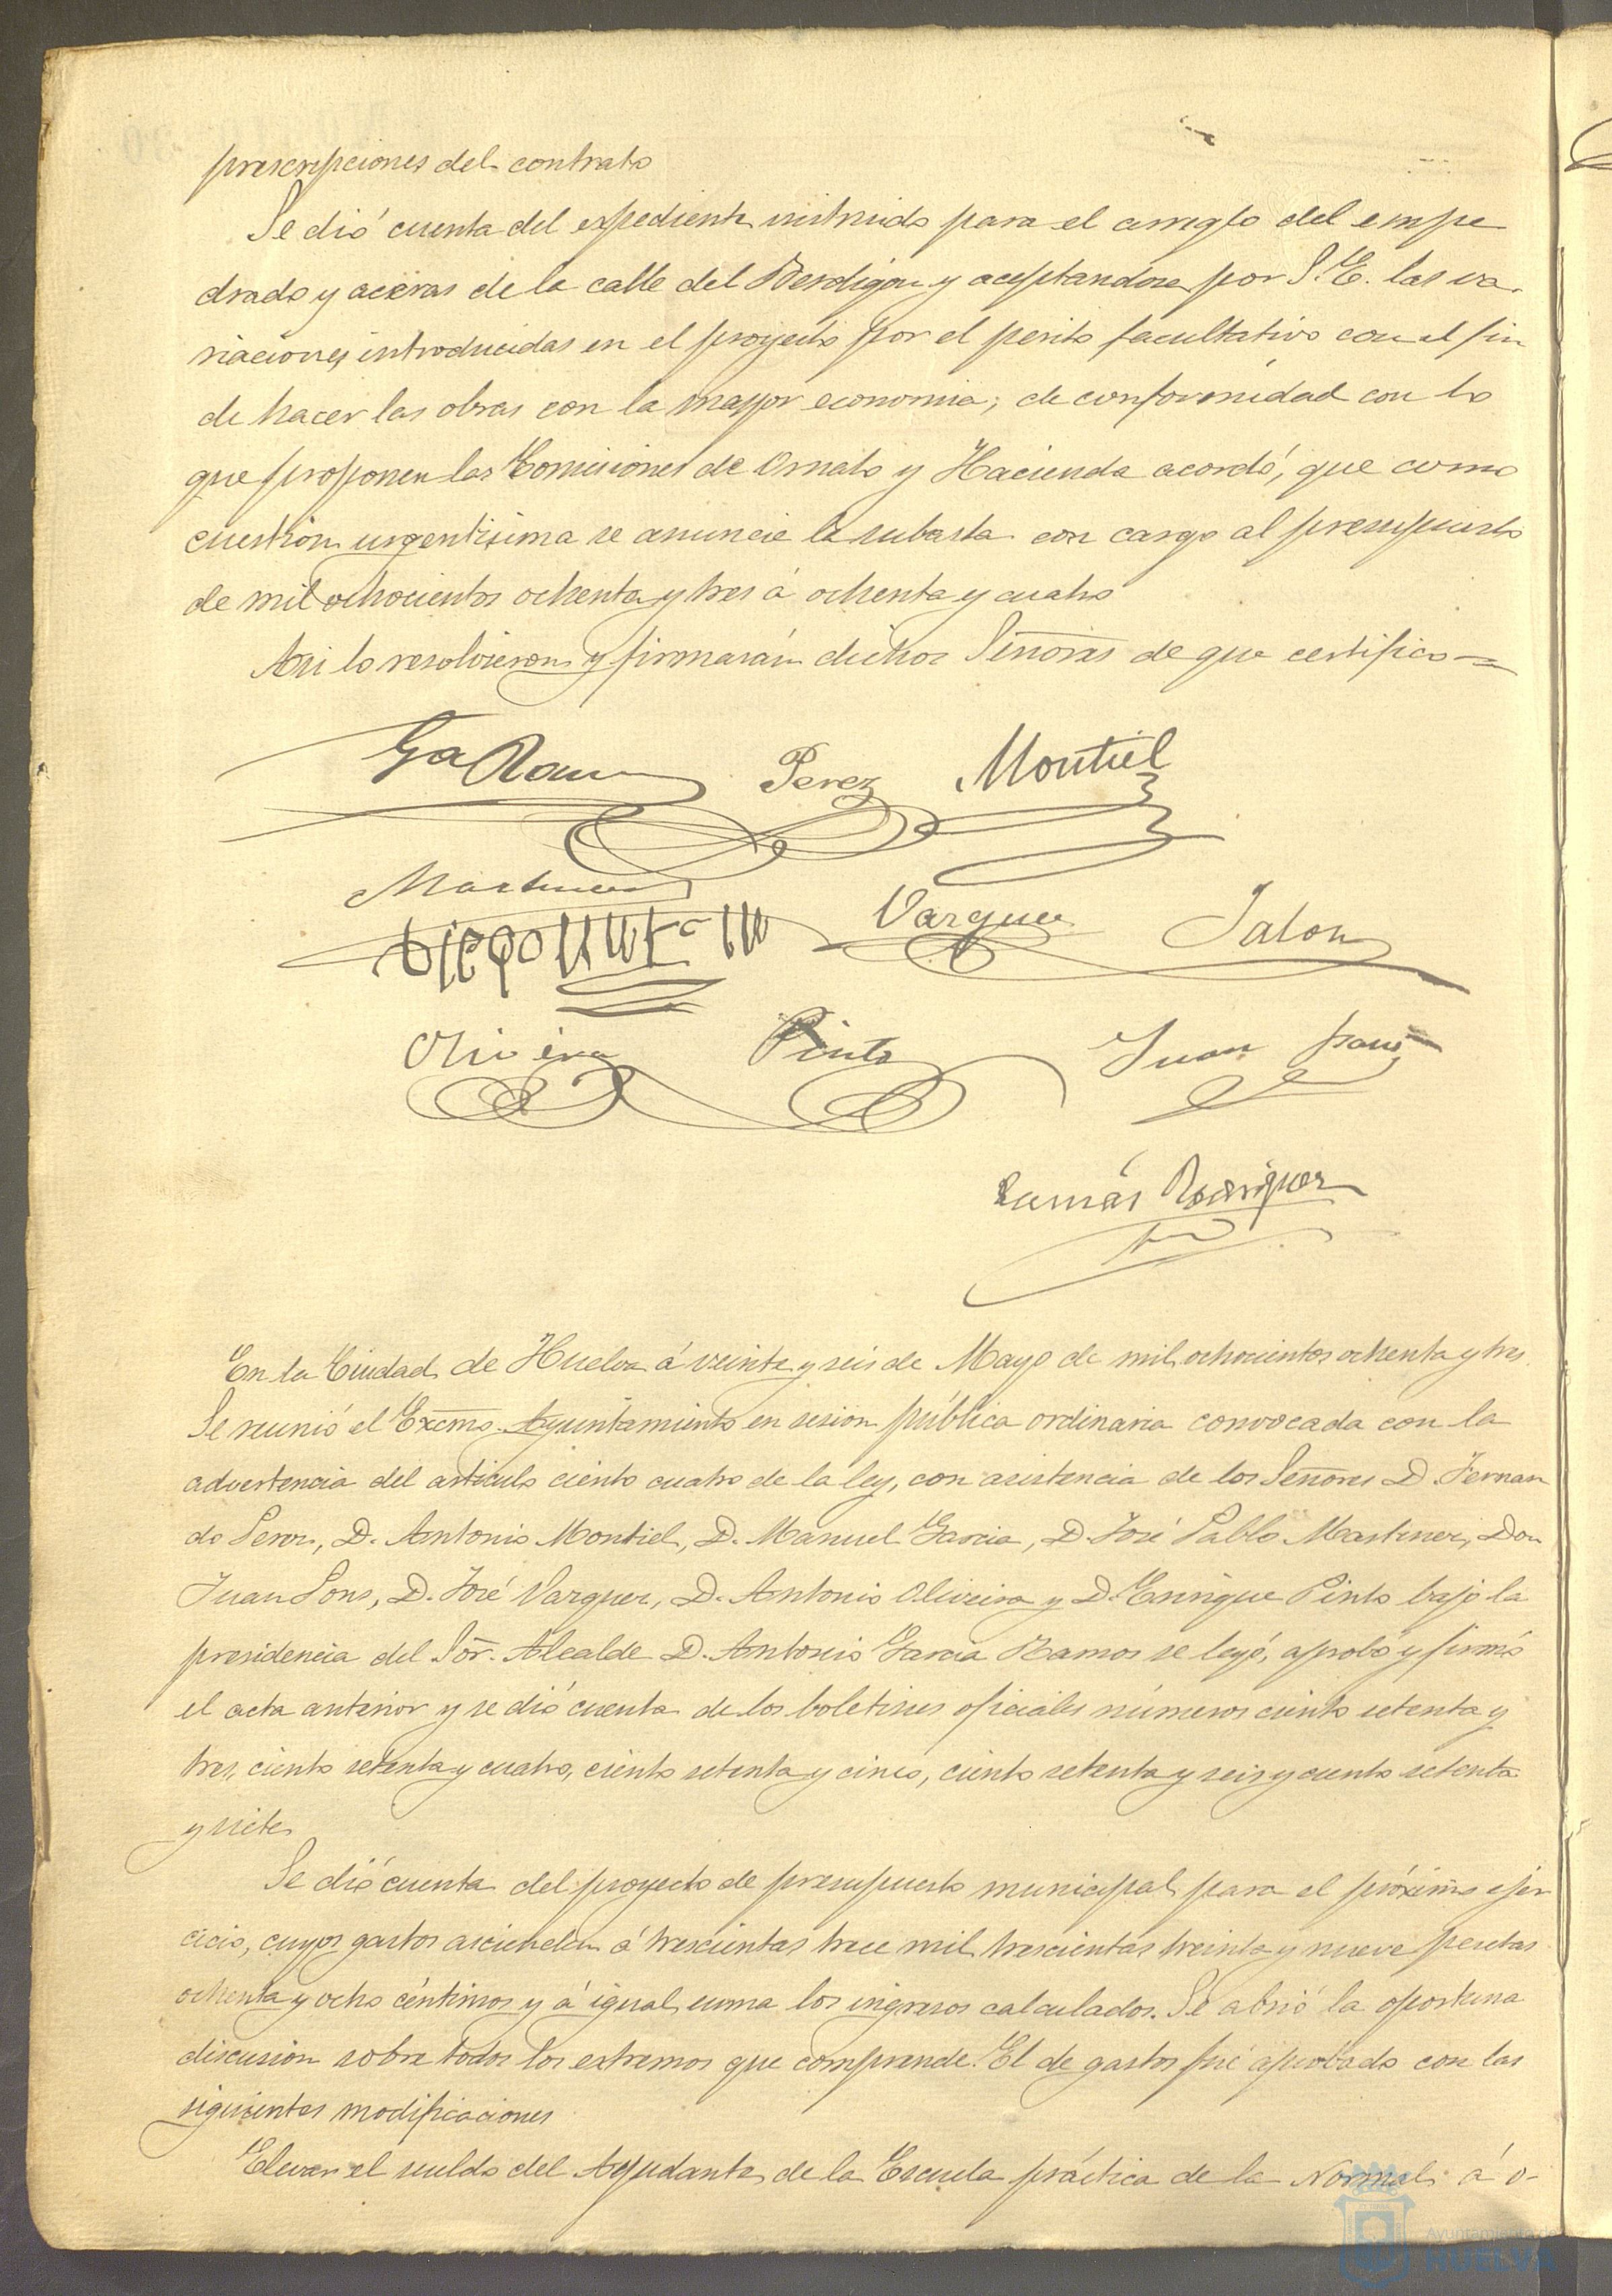 prescripciones del contrato
Se dió cuenta del expediente instruido para el arreglo del empe
drado y aceras de la calle del Berdigon y aceptandose por S.E. las va-
riaciones introducidas en el proyecto por el perito facultativo con el fin
de hacer las obras con la mayor economia; de conformidad con lo
que proponen las Comisiones de Ornato y Hacienda acordó, que como
cuestion urgentisima se anuncie la subasta con cargo al presupuesto
de mil ochocientos ochenta y tres á ochenta y cuatro
Asi lo resolvieron y firmarán dichos Señores de que certifico=
Ga Ramos Perez Montiel
Martinez Vazquez Jalon
Oliveira Pinto Juan Pons
Tomás Rodriguez
En la Ciudad de Huelva á veinte y seis de Mayo de mil ochocientos ochenta y tres
Se reunió el Excmo. Ayuntamiento en sesion pública ordinaria convocada con la
advertencia del articulo ciento cuatro de la ley, con asistencia de los Señores D. Fernan
do Perez, D. Antonio Montiel, D. Manuel Garcia, D. José Pablo Martinez, Don
Juan Pons, D. José Vazquez, D. Antonio Oliveira y D. Enrique Pinto bajo la
presidencia del Sor. Alcalde D. Antonio Garcia Ramos se leyó, aprobó y firmó
el acta anterior y se dió cuenta de los boletines oficiales números ciento setenta y
tres, ciento setenta y cuatro, ciento setenta y cinco, ciento setenta y seis y ciento setenta
y siete
Se dió cuenta del proyecto de presupuesto municipal para el próximo ejer
cicio, cuyos gastos ascienden á trescientas trece mil trescientas treinta y nueve pesetas
ochenta y ocho céntimos y á igual suma los ingresos calculados. Se abrió la oportuna
discusion sobre todos los extremos que comprende. El de gastos fué aprobado con las
siguientes modificaciones
Elevar el sueldo del Ayudante de la Escuela práctica de la Normal á o-
Ayuntamiento de
HUELVA